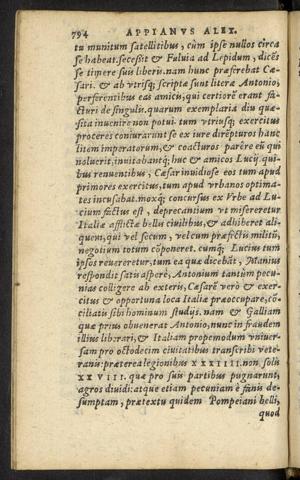 794 APPIANVS ALEX.
tu munitum satellitibus, cùm ipse nullos circa
se habeat. secessit & Fuluia ad Lepidum, dicẽs
se timere suis liberis. nam hunc præferebat Cæ-
sari. & ab vtrisq; scripta sunt litera Antonio,
perferentibus eas amicis, qui certiorẽ erant fa-
cturi de singulis. quarum exemplaria diu quæ-
sita inuenire non potui. tum vtriusq; exercitus
proceres coniurarunt se ex iure dirẽpturos hanc
litem imperatorum, & coacturos parêre eũ qui
noluerit. inuitabantq; huc & amicos Lucij. qui-
bus renuentibus, Cæsar inuidiose eos tum apud
primores exercitus, tum apud vrbanos optima-
tes incusabat. moxq; concursus ex Vrbe ad Lu-
cium factus est, deprecantium vt misereretur
Italiæ afflictæ bellis ciuilibus, & adhiberet ali-
quem, qui vel secum, vel cum præfectis militũ,
negotium totum cõponeret. cumq; Lucius tum
ipsos reuereretur, tum ea quæ dicebãt, Manius
respondit satis asperè, Antonium tantùm pecu-
nias colligere ab exteris, Cæsarẽ verò & exer-
citus & opportuna loca Italiæ præoccupare, cõ-
ciliatis sibi hominum studijs. nam & Galliam
quæ prius obuenerat Antonio, nunc in fraudem
illius liberari, & Italiam propemodum vniuer-
sam pro octodecim ciuitatibus transcribi vete-
ranis: præterea legionibus XXXIIII. non solis
XXVIII. quæ pro suis partibus pugnarunt,
agros diuidi: atque etiam pecuniam è fanis de-
sumptam, prætextu quidem Pompeiani belli,
quod